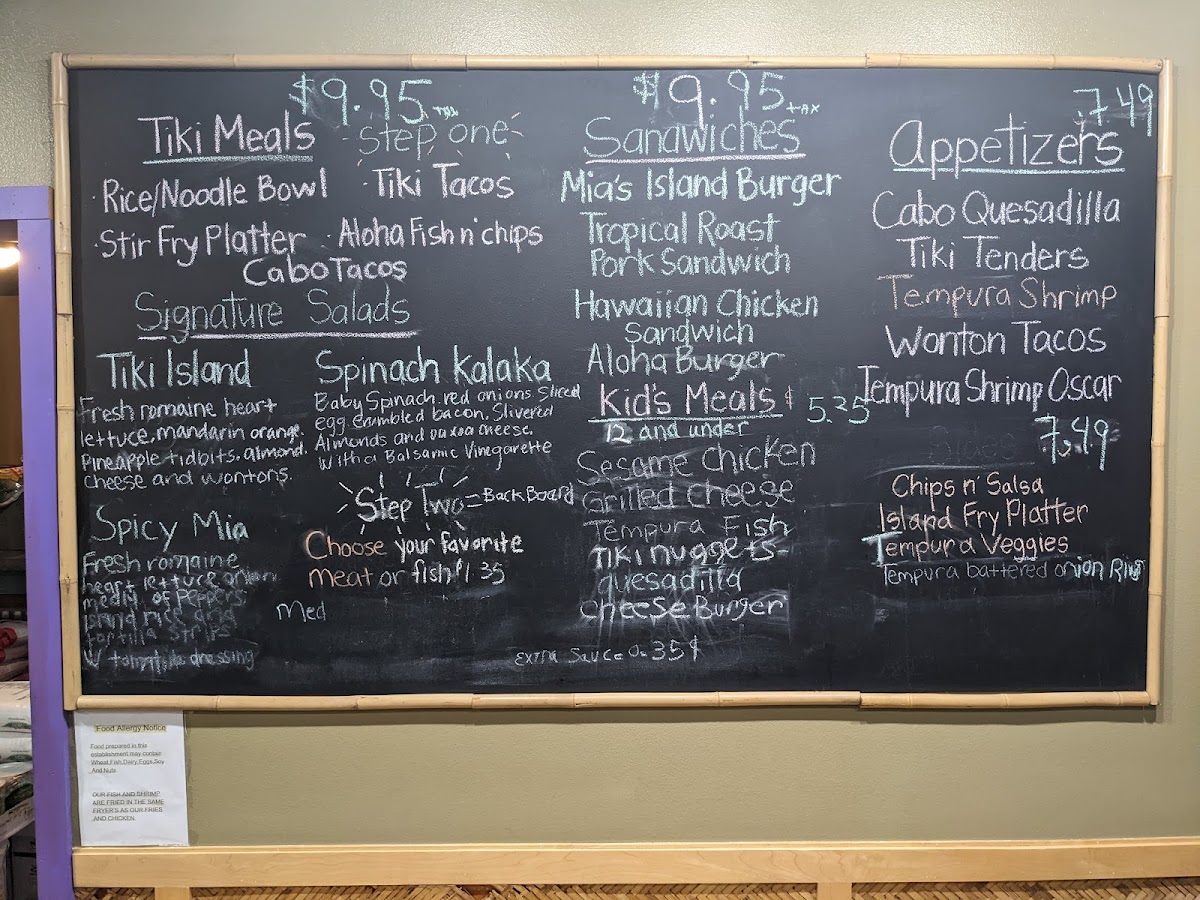 $9.95
Tiki Meals
Step one
·Rice/Noodle Bowl
·Tiki Tacos
·Stir Fry Platter
·Aloha Fish n' chips
Cabo Tacos
Signature Salads
Tiki Island
Fresh romaine heart
lettuce, mandarin orange.
Pineapple tidbits. almond.
cheese and wontons.
Spinach Kalaka
Baby Spinach. red onions. Sliced
egg. crumbled bacon. Slivered
Almonds and cheese.
with a Balsamic Vinegarette
Spicy Mia
Fresh romaine
heart lettuce onion
medly of Peppers
island rice and
tortilla strips
w/ dressing
Step Two = Back Board
Choose your favorite
meat or fish 1.35
Med
$9.95 +tax
Sandwiches
Mia's Island Burger
Tropical Roast
Pork Sandwich
Hawaiian Chicken
Sandwich
Aloha Burger
Kid's Meals $ 5.25
12 and under
Sesame Chicken
Grilled Cheese
Tempura Fish
Tiki nuggets
quesadilla
Cheese Burger
Extra Sauce 35¢
7.49
Appetizers
Cabo Quesadilla
Tiki Tenders
Tempura Shrimp
Wonton Tacos
Tempura Shrimp Oscar
7.49
Sides
Chips n' Salsa
Island Fry Platter
Tempura Veggies
Tempura battered onion Ring
Food Allergy Notice
Food prepared in this
establishment may contain
Wheat,Fish,Dairy,Eggs,Soy
And Nuts
OUR FISH AND SHRIMP
ARE FRIED IN THE SAME
FRYER'S AS OUR FRIES
AND CHICKEN.